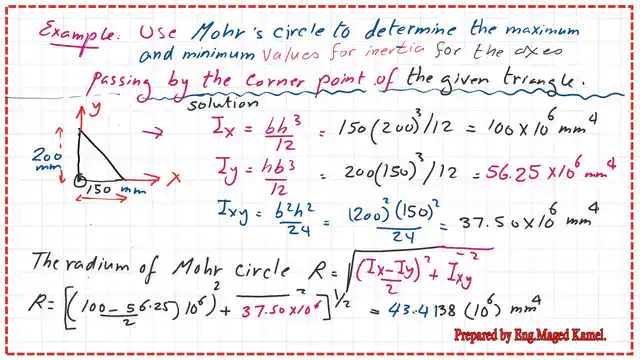 Example: Use Mohr's circle to determine the maximum
and minimum values for inertia for the axes
passing by the corner point of the given triangle.
solution
y
200
mm
150 mm
x
→ Ix = bh³/12 = 150(200)³/12 = 100x10⁶ mm⁴
Iy = hb³/12 = 200(150)³/12 = 56.25x10⁶ mm⁴
Ixy = b²h²/24 = (200)²(150)²/24 = 37.50x10⁶ mm⁴
The radium of Mohr circle R = √((Ix-Iy)/2)² + Ixy⁻²
R = [((100-56.25)/2 10⁶)² + 37.50x10⁶ ²]^1/2 = 43.4138(10⁶) mm⁴
Prepared by Eng.Maged Kamel.